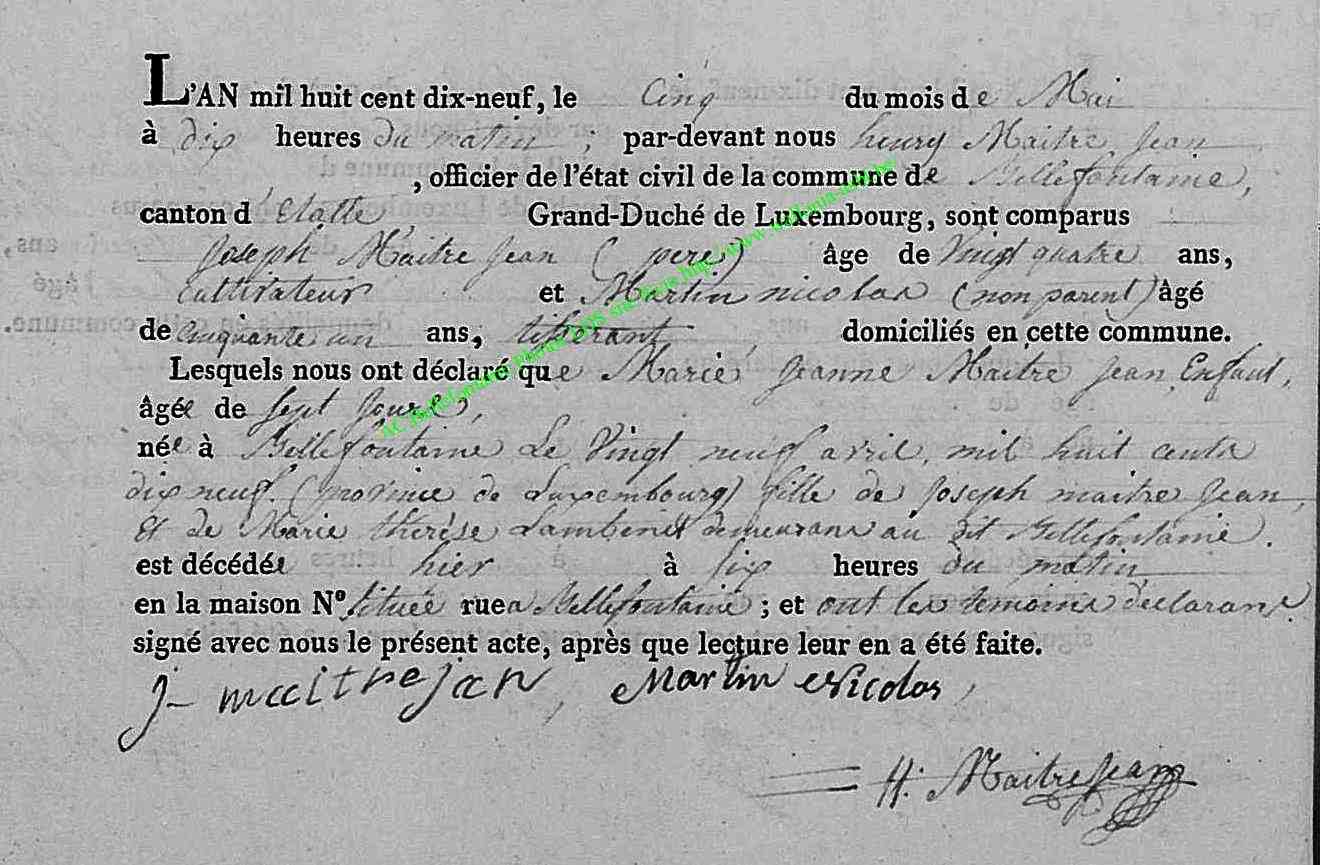 L'AN mil huit cent dix-neuf, le Cinq du mois de Mai
à dix heures du matin ; par-devant nous henry Maitre Jean
, officier de l'état civil de la commune de Bellefontaine,
canton d'Etalle Grand-Duché de Luxembourg, sont comparus
Joseph Maitre Jean (père) âge de Vingt quatre ans,
Cultivateur et Martin nicolas (non parent) âgé
de cinquante un ans, tisserant domiciliés en cette commune.
Lesquels nous ont déclaré que Marie Jeanne Maitre Jean, Enfant,
âgée de sept Jours,
née à Bellefontaine Le Vingt neuf avril, mil huit cents
dix neuf. (province de Luxembourg) fille de Joseph maitre Jean,
et de Marie therèse Lambinet demeurans au dit Bellefontaine.
est décédée hier à six heures du matin,
en la maison N° située rue a Bellefontaine ; et ont les temoins declarans
signé avec nous le présent acte, après que lecture leur en a été faite.
J maitrejan, Martin Nicolas,
H: MaitreJean